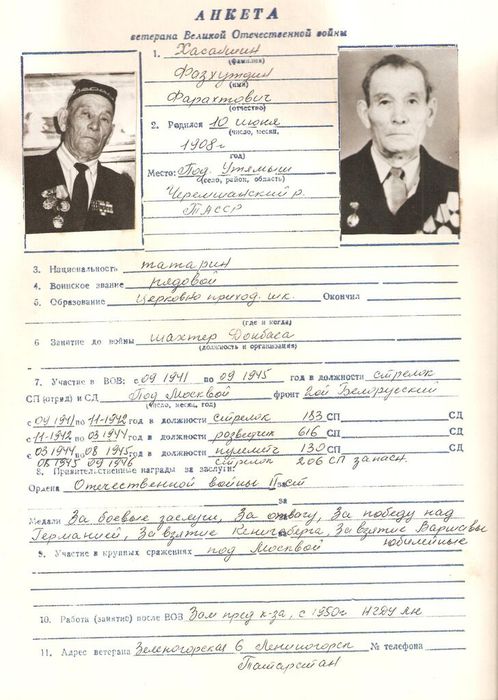 АНКЕТА
ветерана Великой Отечественной войны
1. Хасаншин
(фамилия)
Фазхутдин
(имя)
Фарахтович
(отчество)
2. Родился 10 июня
(число, месяц,
1908 г.
год)
Место: Под. Утямыш
(село, район, область)
Черемшанский р.
ТАССР
3. Национальность татарин
4. Воинское звание рядовой
5. Образование церковно приход. шк. Окончил
(где и когда)
6 Занятие до войны шахтер Донбаса
(должность и организация)
7. Участие в ВОВ: с 09 1941 по 09 1945 год в должности стрелок
СП (отряд) и СД Под Москвой фронт 2ой Белорусский
(число, месяц, год)
с 09 1941 по 11-1942 год в должности стрелок 183 СП СД
с 11-1942 по 03 1944 год в должности разведчик 616 СП СД
с 03 1944 по 08 1945 год в должности пулеметч 130 СП СД
08 1945 09 1946 стрелок 206 СП запасн.
8. Правительственные награды за заслуги:
Ордена Отечественной войны II ст за
за
Медали За боевые заслуги, За отвагу, За победу над
Германией, За взятие Кенигсберга, За взятие Варшавы
юбилейные
9. Участие в крупных сражениях под Москвой
10. Работа (занятие) после ВОВ Зам пред к-за, с 1950г НГДУ ЛН
11. Адрес ветерана Зеленогорская 6 Лениногорск № телефона
Татарстан